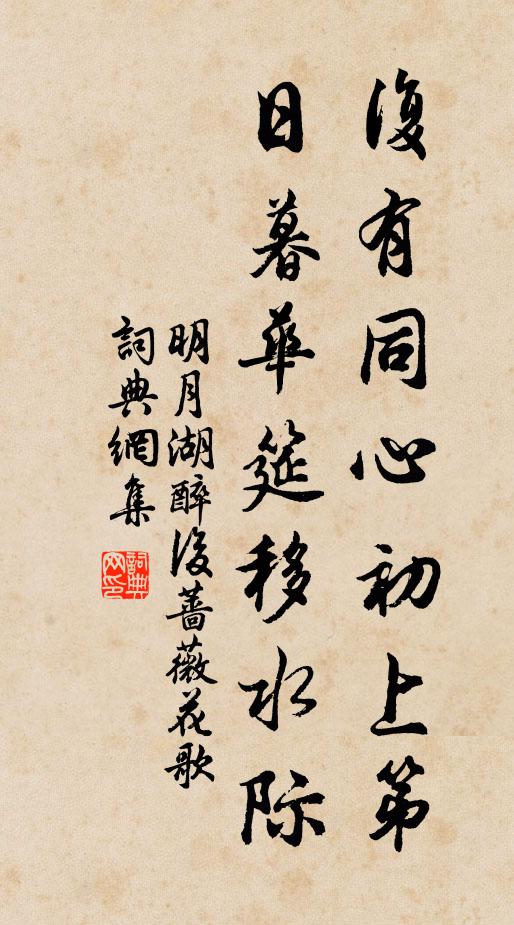 復有同心初上第
日暮華筵移水際
明月湖醉後薔薇花歌
詞典網集
詞典網印